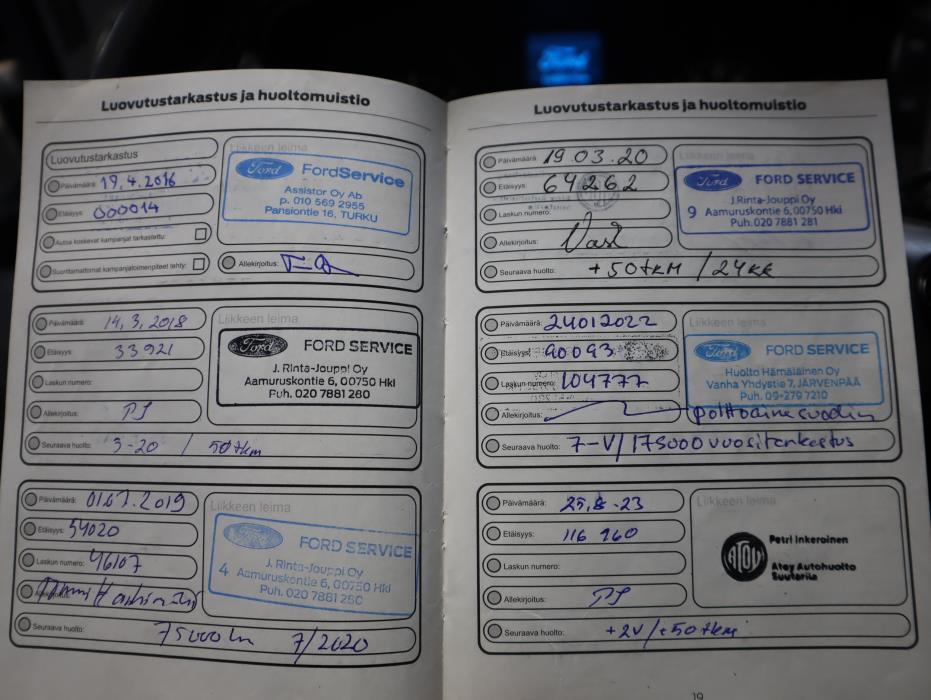 Ford
Luovutustarkastus ja huoltomuistio
Luovutustarkastus
Päivämäärä: 19.4.2016
Etäisyys: 000014
Autoa koskevat kampanjat tarkastettu:
Suorittamattomat kampanjatoimenpiteet tehty:
Liikkeen leima
Ford FordService
Assistor Oy Ab
p. 010 569 2955
Pansiontie 16, TURKU
Allekirjoitus:
Päivämäärä: 14.3.2018
Etäisyys: 33921
Laskun numero:
Allekirjoitus: PJ
Seuraava huolto: 3-20 / 50 tkm
Liikkeen leima
Ford FORD SERVICE
J. Rinta-Jouppi Oy
Aamuruskontie 6, 00750 Hki
Puh. 020 7881 280
Päivämäärä: 01.07.2019
Etäisyys: 54020
Laskun numero: 46107
Allekirjoitus:
Seuraava huolto: 75000 km 7/2020
Liikkeen leima
Ford FORD SERVICE
J. Rinta-Jouppi Oy
4 Aamuruskontie 6, 00750 Hki
Puh. 020 7881 280
Luovutustarkastus ja huoltomuistio
Päivämäärä: 19.03.20
Etäisyys: 64262
Laskun numero:
Allekirjoitus:
Seuraava huolto: +50tkm / 24kk
Liikkeen leima
Ford FORD SERVICE
J.Rinta-Jouppi Oy
9 Aamuruskontie 6, 00750 Hki
Puh. 020 7881 281
Päivämäärä: 24012022
Etäisyys: 90093
Laskun numero: 104777
Allekirjoitus: polttoainesuodin
Seuraava huolto: 7-V/175000 vuositarkastus
Liikkeen leima
Ford FORD SERVICE
Huolto Hämäläinen Oy
Vanha Yhdystie 7, JÄRVENPÄÄ
Puh. 09-279 7210
Päivämäärä: 25.8-23
Etäisyys: 116 160
Laskun numero:
Allekirjoitus: PJ
Seuraava huolto: +2V/+50tkm
Liikkeen leima
ATOY
Petri Inkeroinen
Atoy Autohuolto
Suutarila
19